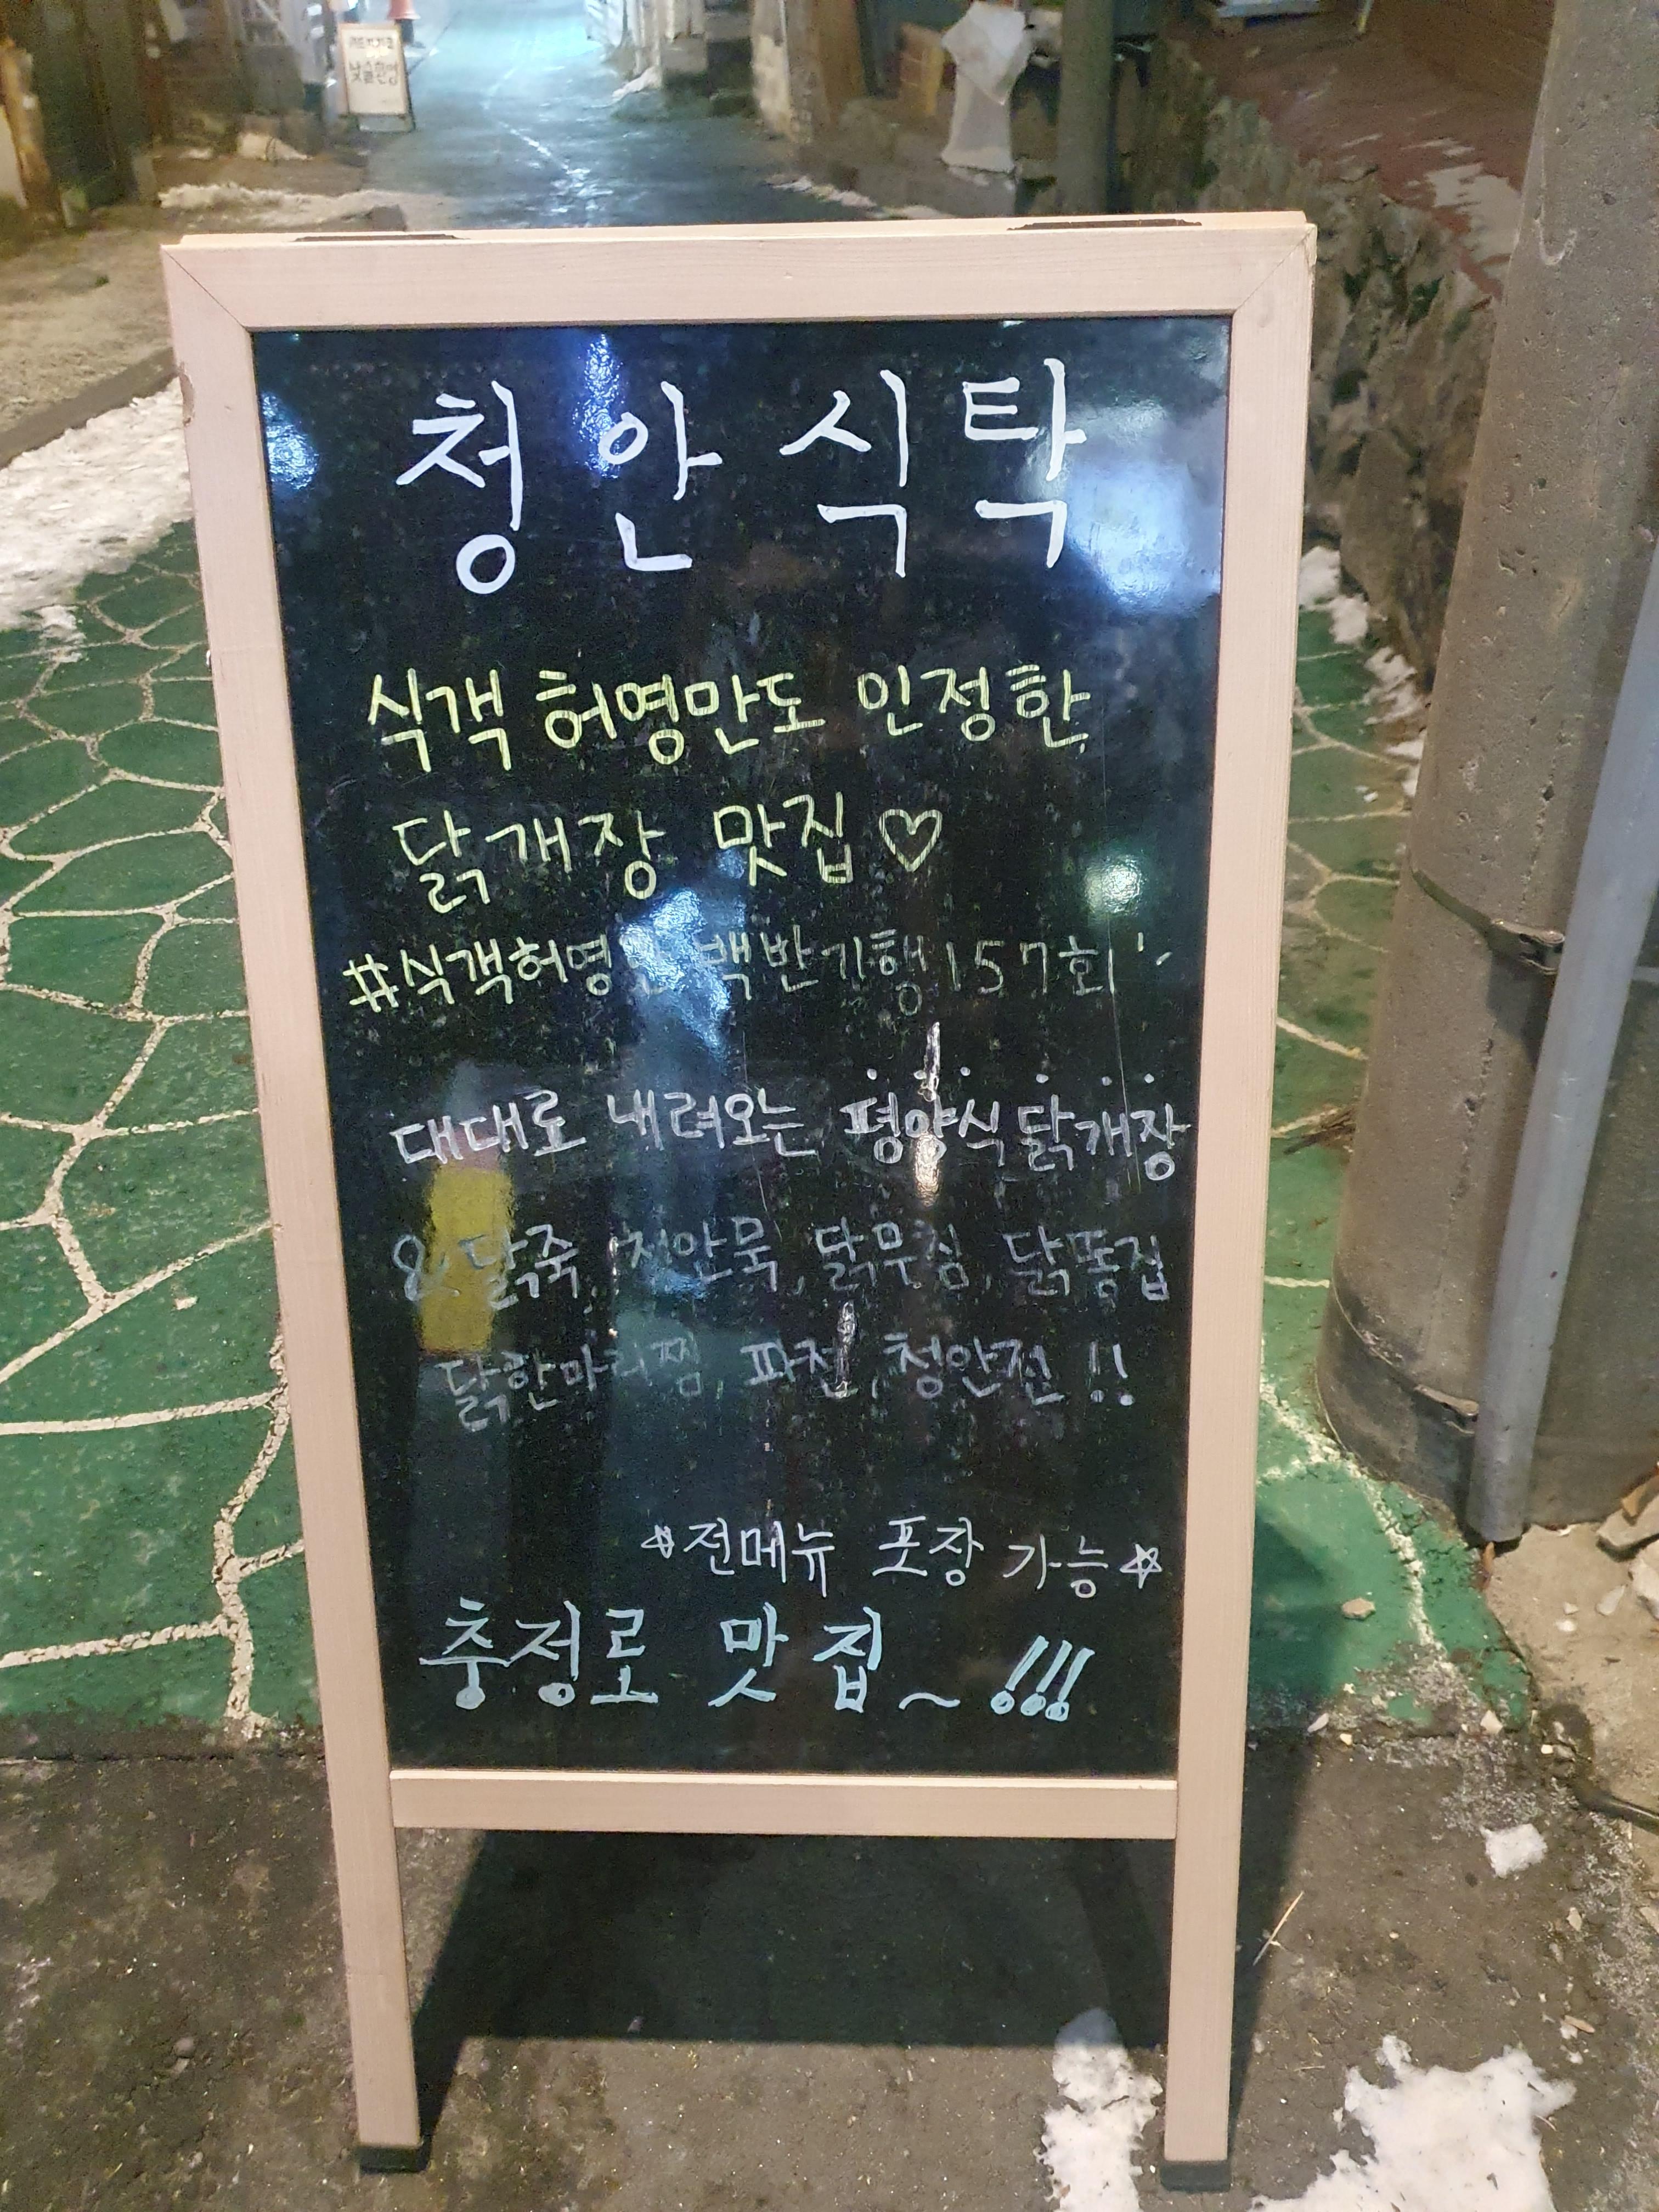 낮술환영
청안식탁
식객 허영만도 인정한
닭개장 맛집♡
#식객허영만 백반기행 157회
대대로 내려오는 평양식닭개장
& 닭죽, 청안묵, 닭무침, 닭똥집
닭한마리찜, 파전, 청안전 !!
☆전메뉴 포장 가능☆
충정로 맛집~!!!